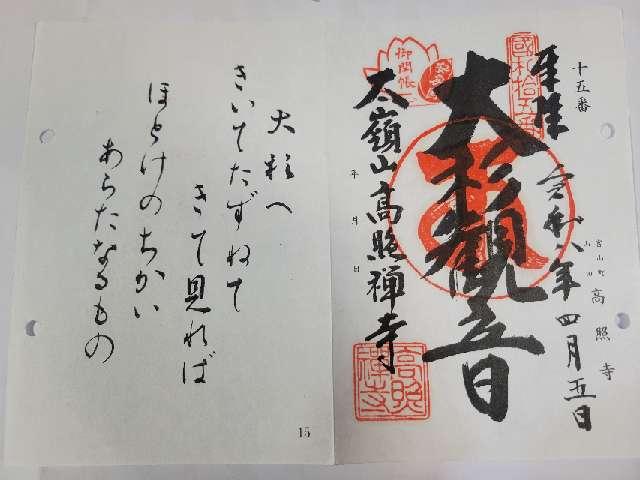 十五番
國札拾五番
奉拝
令和八年四月五日
大彩観音
御開帳
太嶺山高照禅寺
平 月 日
高照寺
高照禅寺
大彩へ
きいてたずねて
きて見れば
ほとけのちかい
あらたなるもの
15